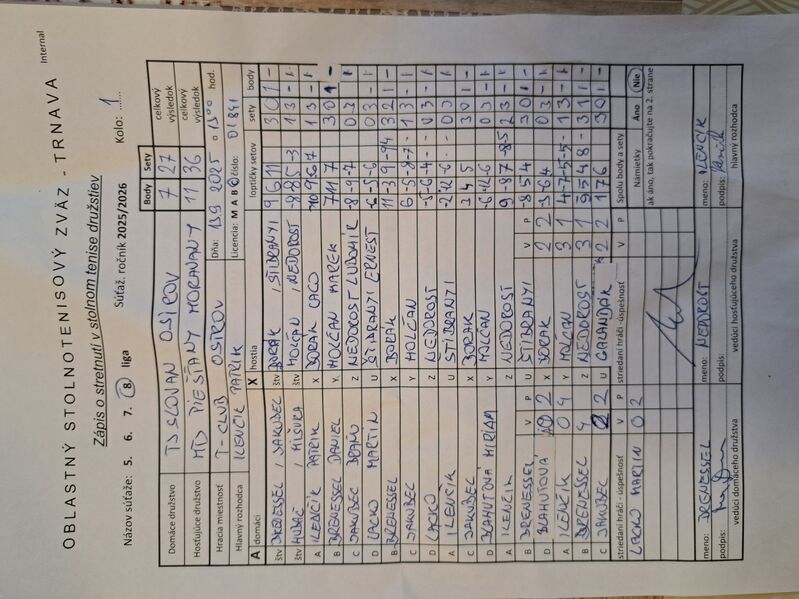 OBLASTNÝ STOLNOTENISOVÝ ZVÄZ - TRNAVA
Internal
Zápis o stretnutí v stolnom tenise družstiev
Názov súťaže: 5. 6. 7. 8. liga Súťaž. ročník 2025/2026 Kolo: 1
Body Sety
Domáce družstvo TJ SLOVAN OSTROV 7 27 celkový výsledok
Hosťujúce družstvo PIEŠŤANY MORAVANY 11 36 celkový výsledok
Hracia miestnosť T-CLUB OSTROV Dňa: 13.9 2025 o 1300 hod.
Hlavný rozhodca ILENČÍK PATRIK Licencia: M A B C číslo: 01841
A domáci X hostia loptičky setov sety body
štv DRENESSEL / JAKUBEC štv BORÁK / ŠTIBRANYI 9 6 11 3 0 1 -
štv HUBAČ / MIŠURA štv MOLČAN / NEDOROST -8 8 -5 -3 1 3 - 1
A ILENČÍK PATRIK X BORÁK LACO 1 3 - 1
B DRENESSEL DANIEL Y MOLČAN MAREK 7 11 7 3 0 1 -
C JAKUBEC Z NEDOROST ĽUBOMÍR -8 -9 -7 0 3 - 1
D LACKO MARTIN U ŠTIBRANYI ERNEST -6 -5 -6 0 3 - 1
B DRENESSEL X BORÁK 11 -3 9 -9 4 3 2 1 -
A Y MOLČAN 1 3 - 1
D LACKO Z NEDOROST -5 -6 -4 0 3 - 1
A ILENČÍK U ŠTIBRANYI 0 3 - 1
C JAKUBEC X BORÁK 3 4 5 3 0 1 -
D BLAHUTOVÁ MIRIAM Y MOLČAN -6 -12 -6 0 3 - 1
A ILENČÍK Z NEDOROST 9 -8 7 -8 -5 2 3 - 1
B DRENESSEL U ŠTIBRANYI 8 5 4 3 0 1 -
D BLAHUTOVÁ X BORÁK -3 -6 -4 0 3 - 1
A ILENČÍK Y MOLČAN 1 3 - 1
B DRENESSEL Z NEDOROST 3 1 1 -
C JAKUBEC U GALANDÁK 1 7 6 3 0 1 -
V P V P
striedaní hráči - úspešnosť striedaní hráči - úspešnosť Spolu body a sety
LACKO MARTIN 0 2
Námietky Áno Nie
ak áno, tak pokračujte na 2. strane
meno: DRENESSEL meno: NEDOROST meno: ILENČÍK
podpis: podpis: podpis:
vedúci domáceho družstva vedúci hosťujúceho družstva hlavný rozhodca